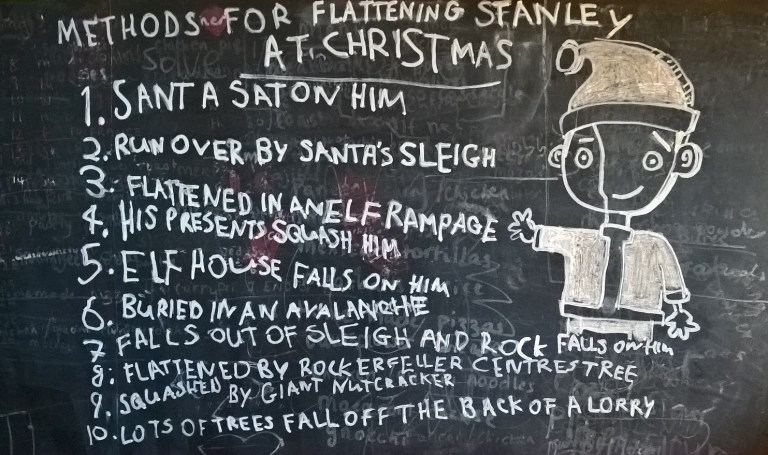 METHODS FOR FLATTENING STANLEY
AT CHRISTMAS
1. SANTA SAT ON HIM
2. RUN OVER BY SANTA'S SLEIGH
3. FLATTENED IN AN ELF RAMPAGE
4. HIS PRESENTS SQUASH HIM
5. ELF HOUSE FALLS ON HIM
6. BURIED IN AN AVALANCHE
7 FALLS OUT OF SLEIGH AND ROCK FALLS ON HIM
8. FLATTENED BY ROCKERFELLER CENTRES TREE
9. SQUASHED BY GIANT NUTCRACKER
10. LOTS OF TREES FALL OFF THE BACK OF A LORRY